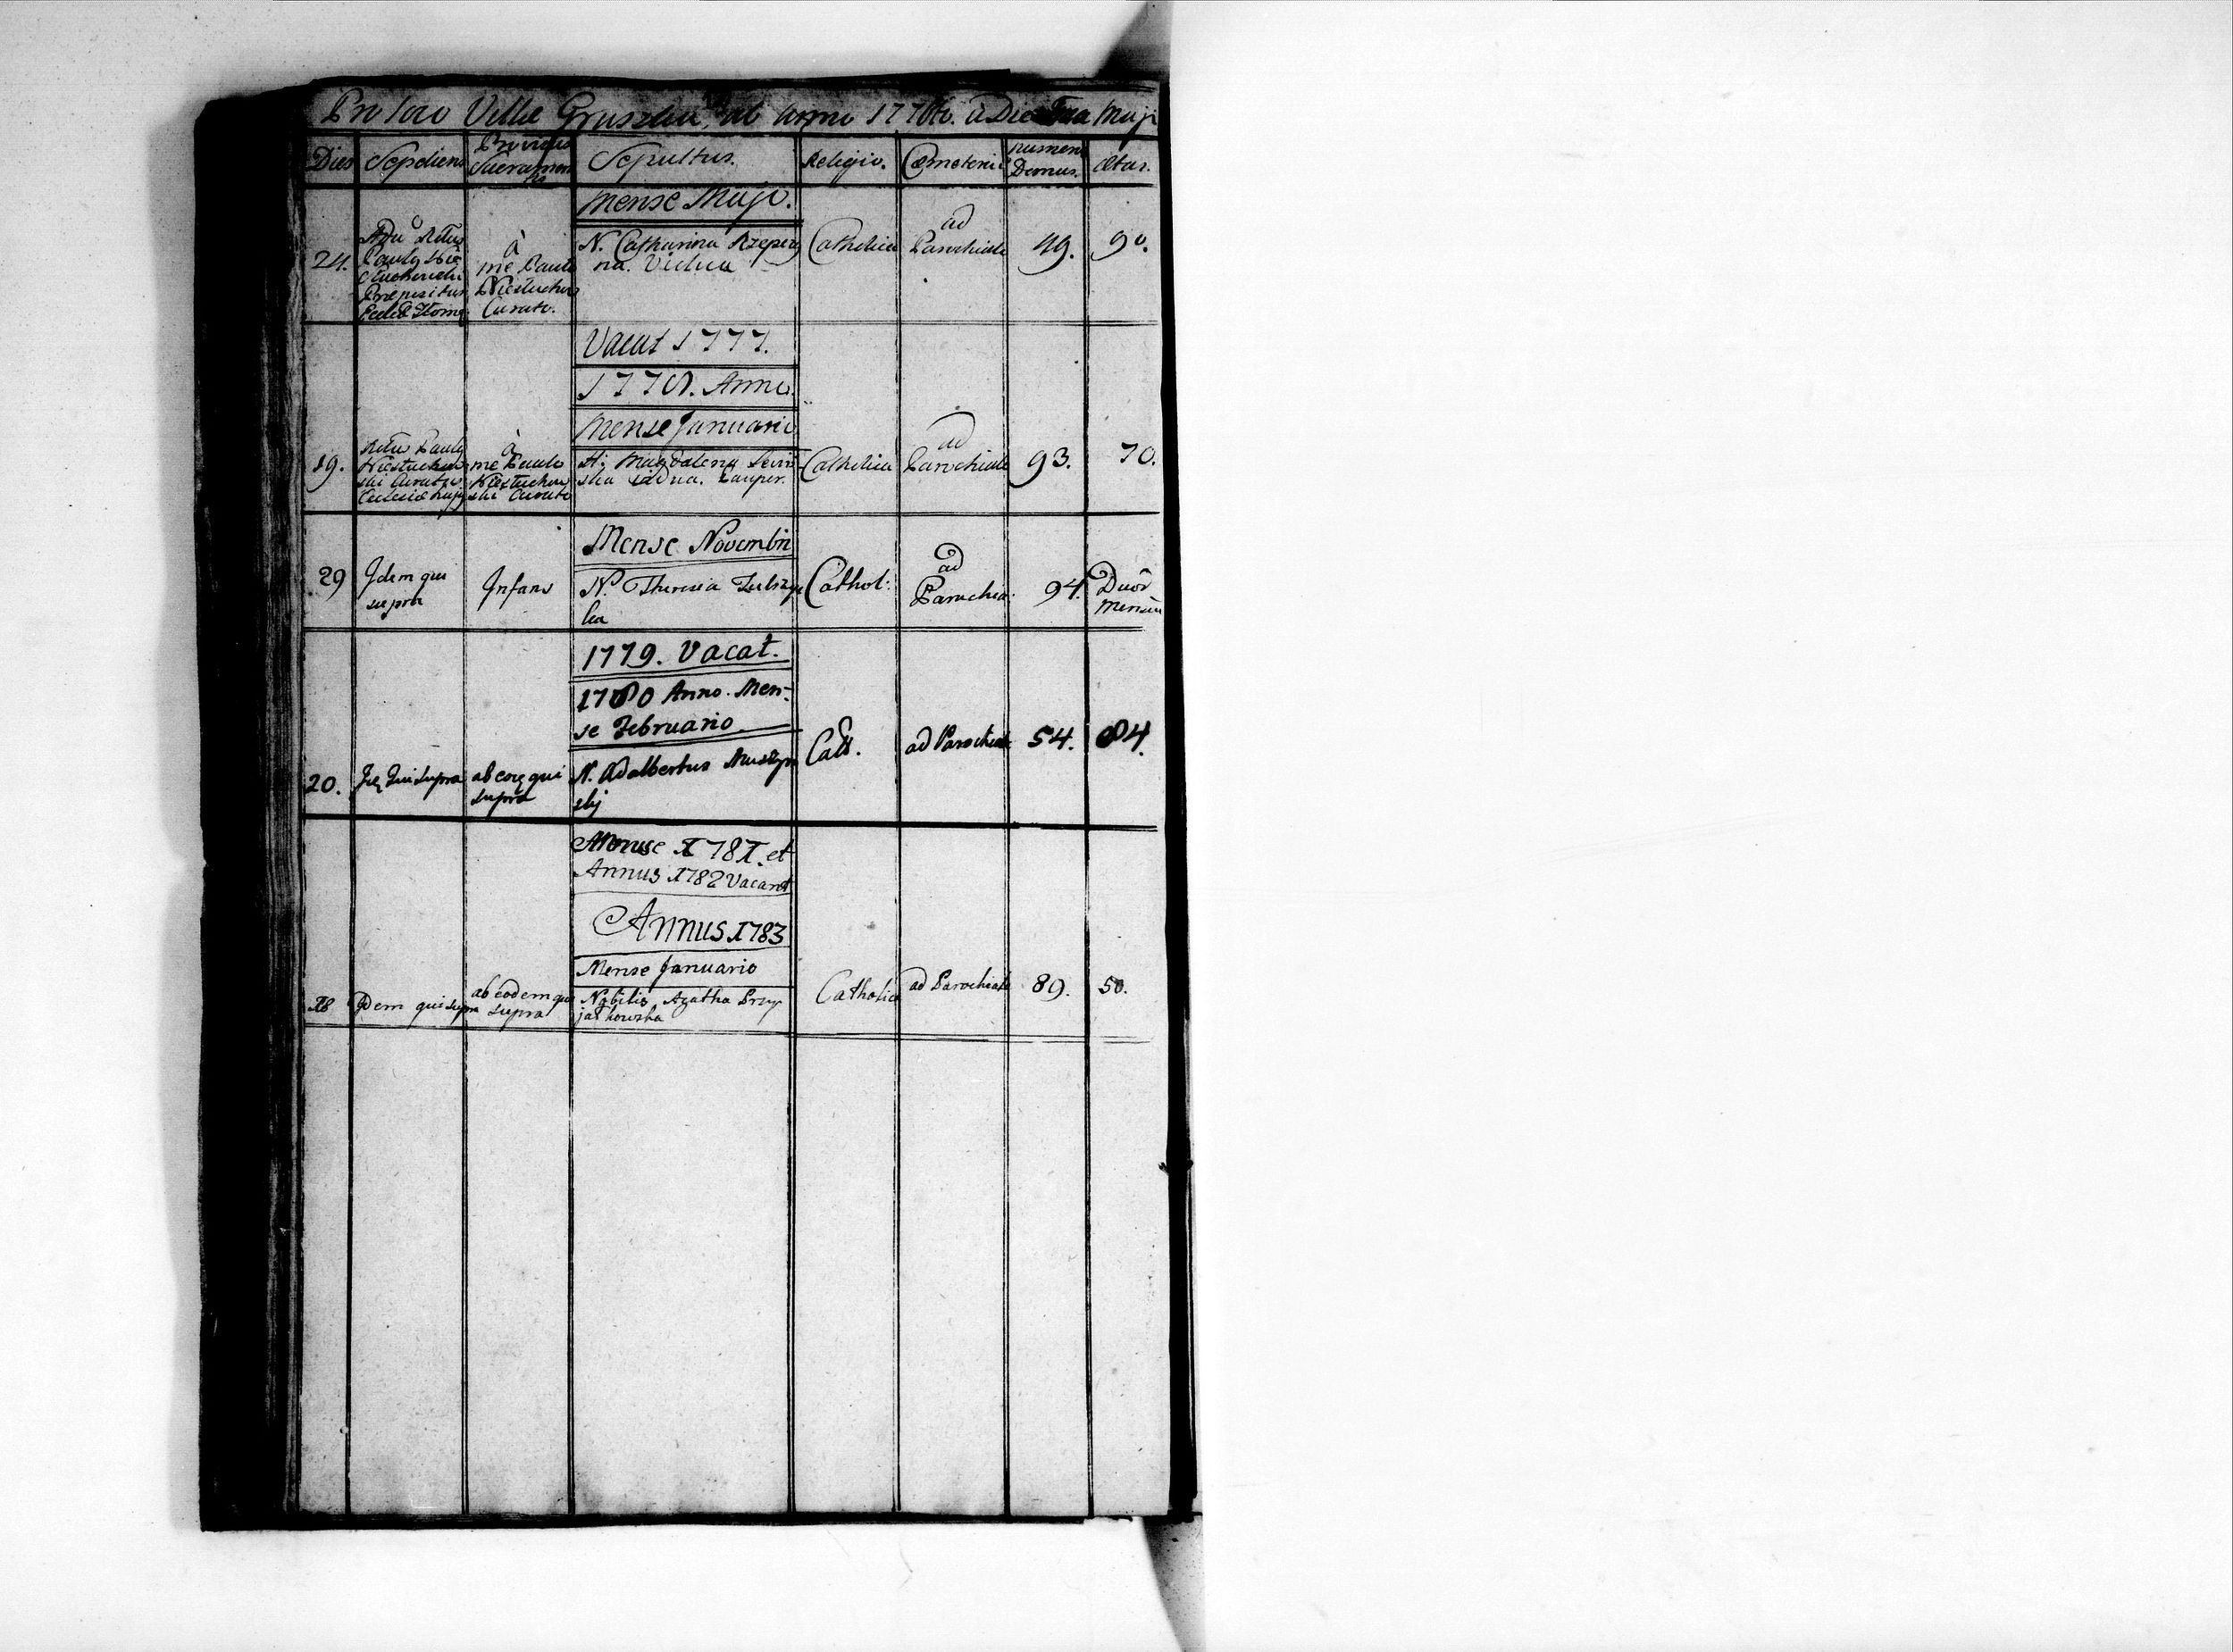 Pro loco Villæ Gruszka ab anno 1776to. à Die 1ma Maji
Dies Sepeliens Provisus Sacramentis Sepultus. Religio. Cæmeteriū numerus Domus. Ætas.
Mense Majo.
24.
Paulq
Præpositus
à
me Paulo
Curato.
N. Catharina Rzepczy
na. Vidua
Catholica
ad
Parochiale
49.
90.
Vacat 1777.
1778. Anno.
Mense Januario
19.
Paulq
ski Curatus
Ecclesiæ hujq
à
me Paulo
ski Curato
Magdalena
ska Vidua. Pauper.
Catholica
ad
Parochiale
93.
70.
Mense Novembri
29
Idem qui
supra
Infans
N. Theresia
ka
Cathol:
ad
Parochia:
94.
Duor̄
Mensiū
1779. Vacat.
1780 Anno. Men-
se Februario
20.
qui supra
ab eoq qui
supra
N. Adalbertus
skj
Cath.
ad Parochiale
54.
84.
Mense 1781. et
Annus 1782 Vacant
Annus 1783
Mense Januario
18
Idem qui supra
ab eodem qui
supra
Nobilis Agatha Przy
jałkowska
Catholica
ad Parochiale
89.
50.